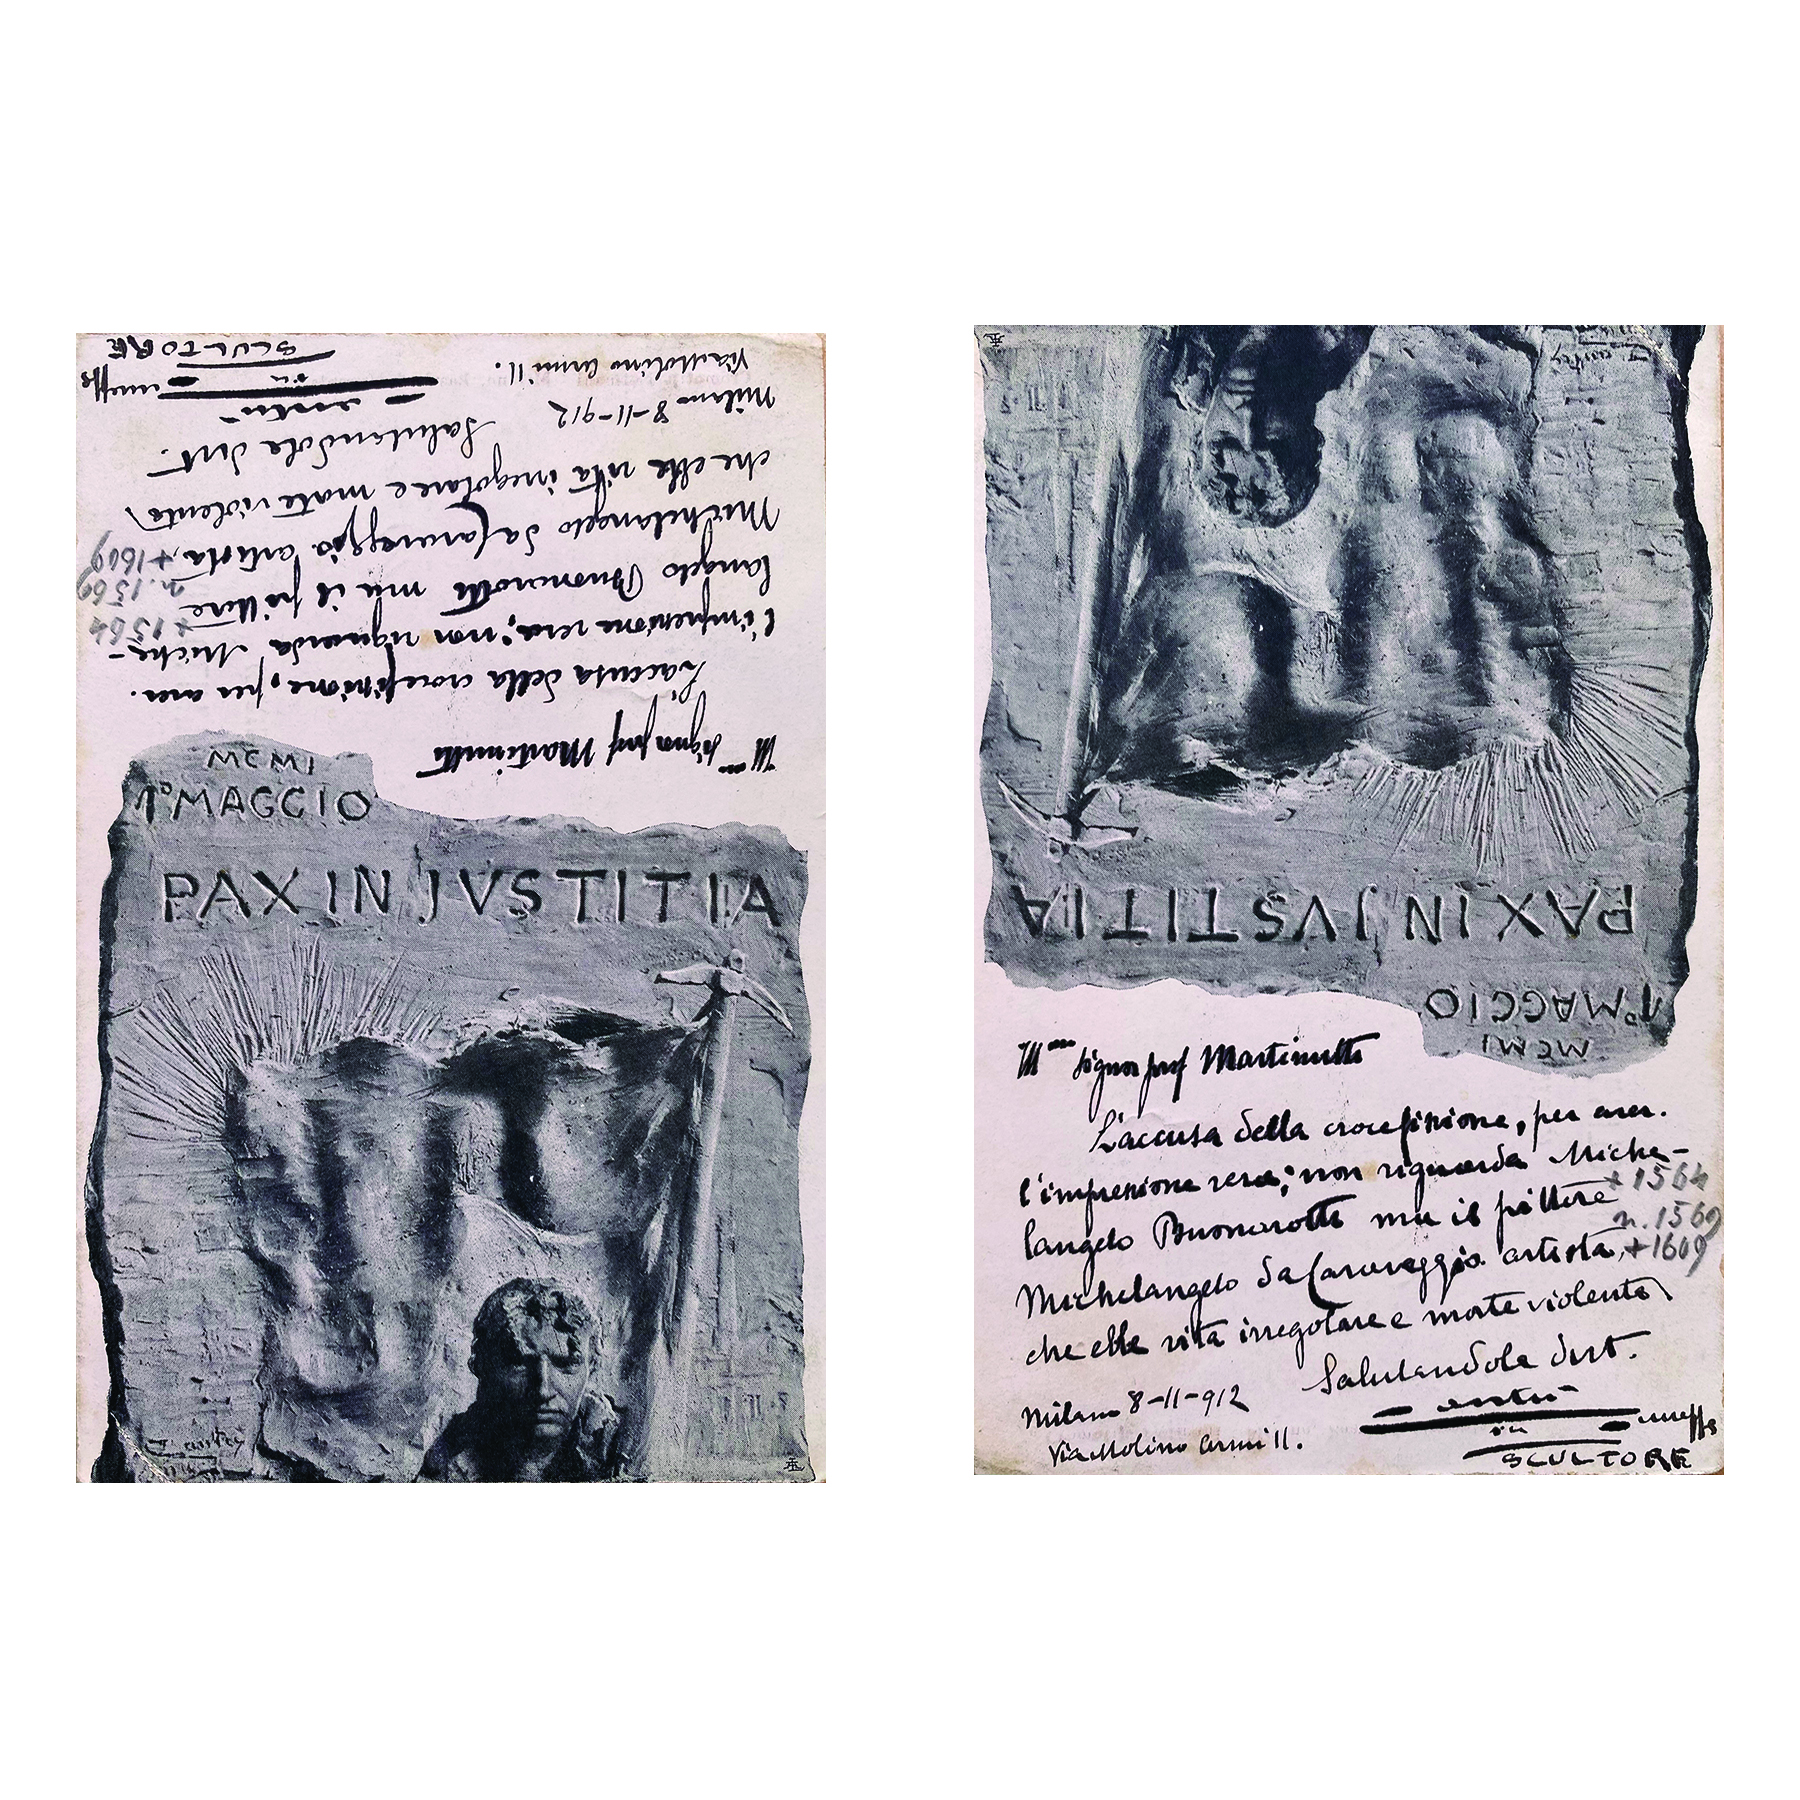 MCMI
1º MAGGIO
PAX IN JVSTITIA
Ill.mo Signor prof Martinutti
L'accusa della crocefissione, per aver.
l'impressione vera; non riguarda Miche-
langelo Buonarotti ma il pittore
Michelangelo da Caravaggio artista,
che ebbe vita irregolare e morte violenta
+ 1564
n. 1569
+ 1609
Salutandola dist.
Milano 8-11-912
Via Molino Armi 11.
SCULTORE
PAX IN JVSTITIA
1º MAGGIO
MCMI
Ill.mo Signor prof Martinutti
L'accusa della crocefissione, per aver.
l'impressione vera; non riguarda Miche-
+ 1564
langelo Buonarotti ma il pittore
n. 1569
Michelangelo da Caravaggio artista, + 1609
che ebbe vita irregolare e morte violenta
Salutandola dist.
Milano 8-11-912
Via Molino Armi 11.
SCULTORE